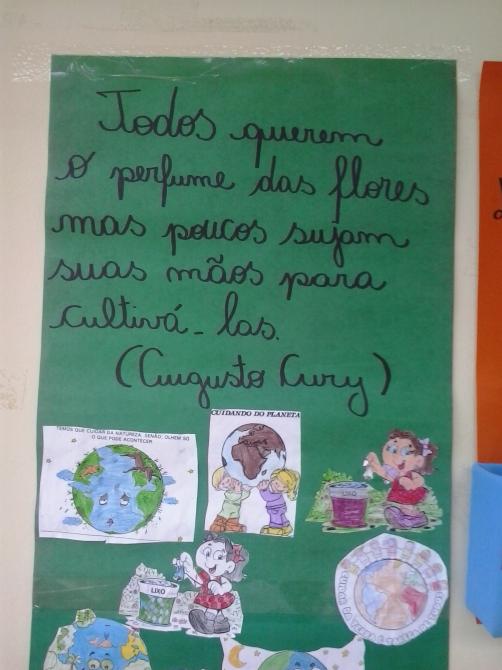 Todos querem
o perfume das flores
mas poucos sujam
suas mãos para
cultivá-las.
(Augusto Cury)
CUIDANDO DO PLANETA
TEMOS QUE CUIDAR DA NATUREZA, SENÃO, OLHEM SÓ
O QUE PODE ACONTECER
LIXO
LIXO